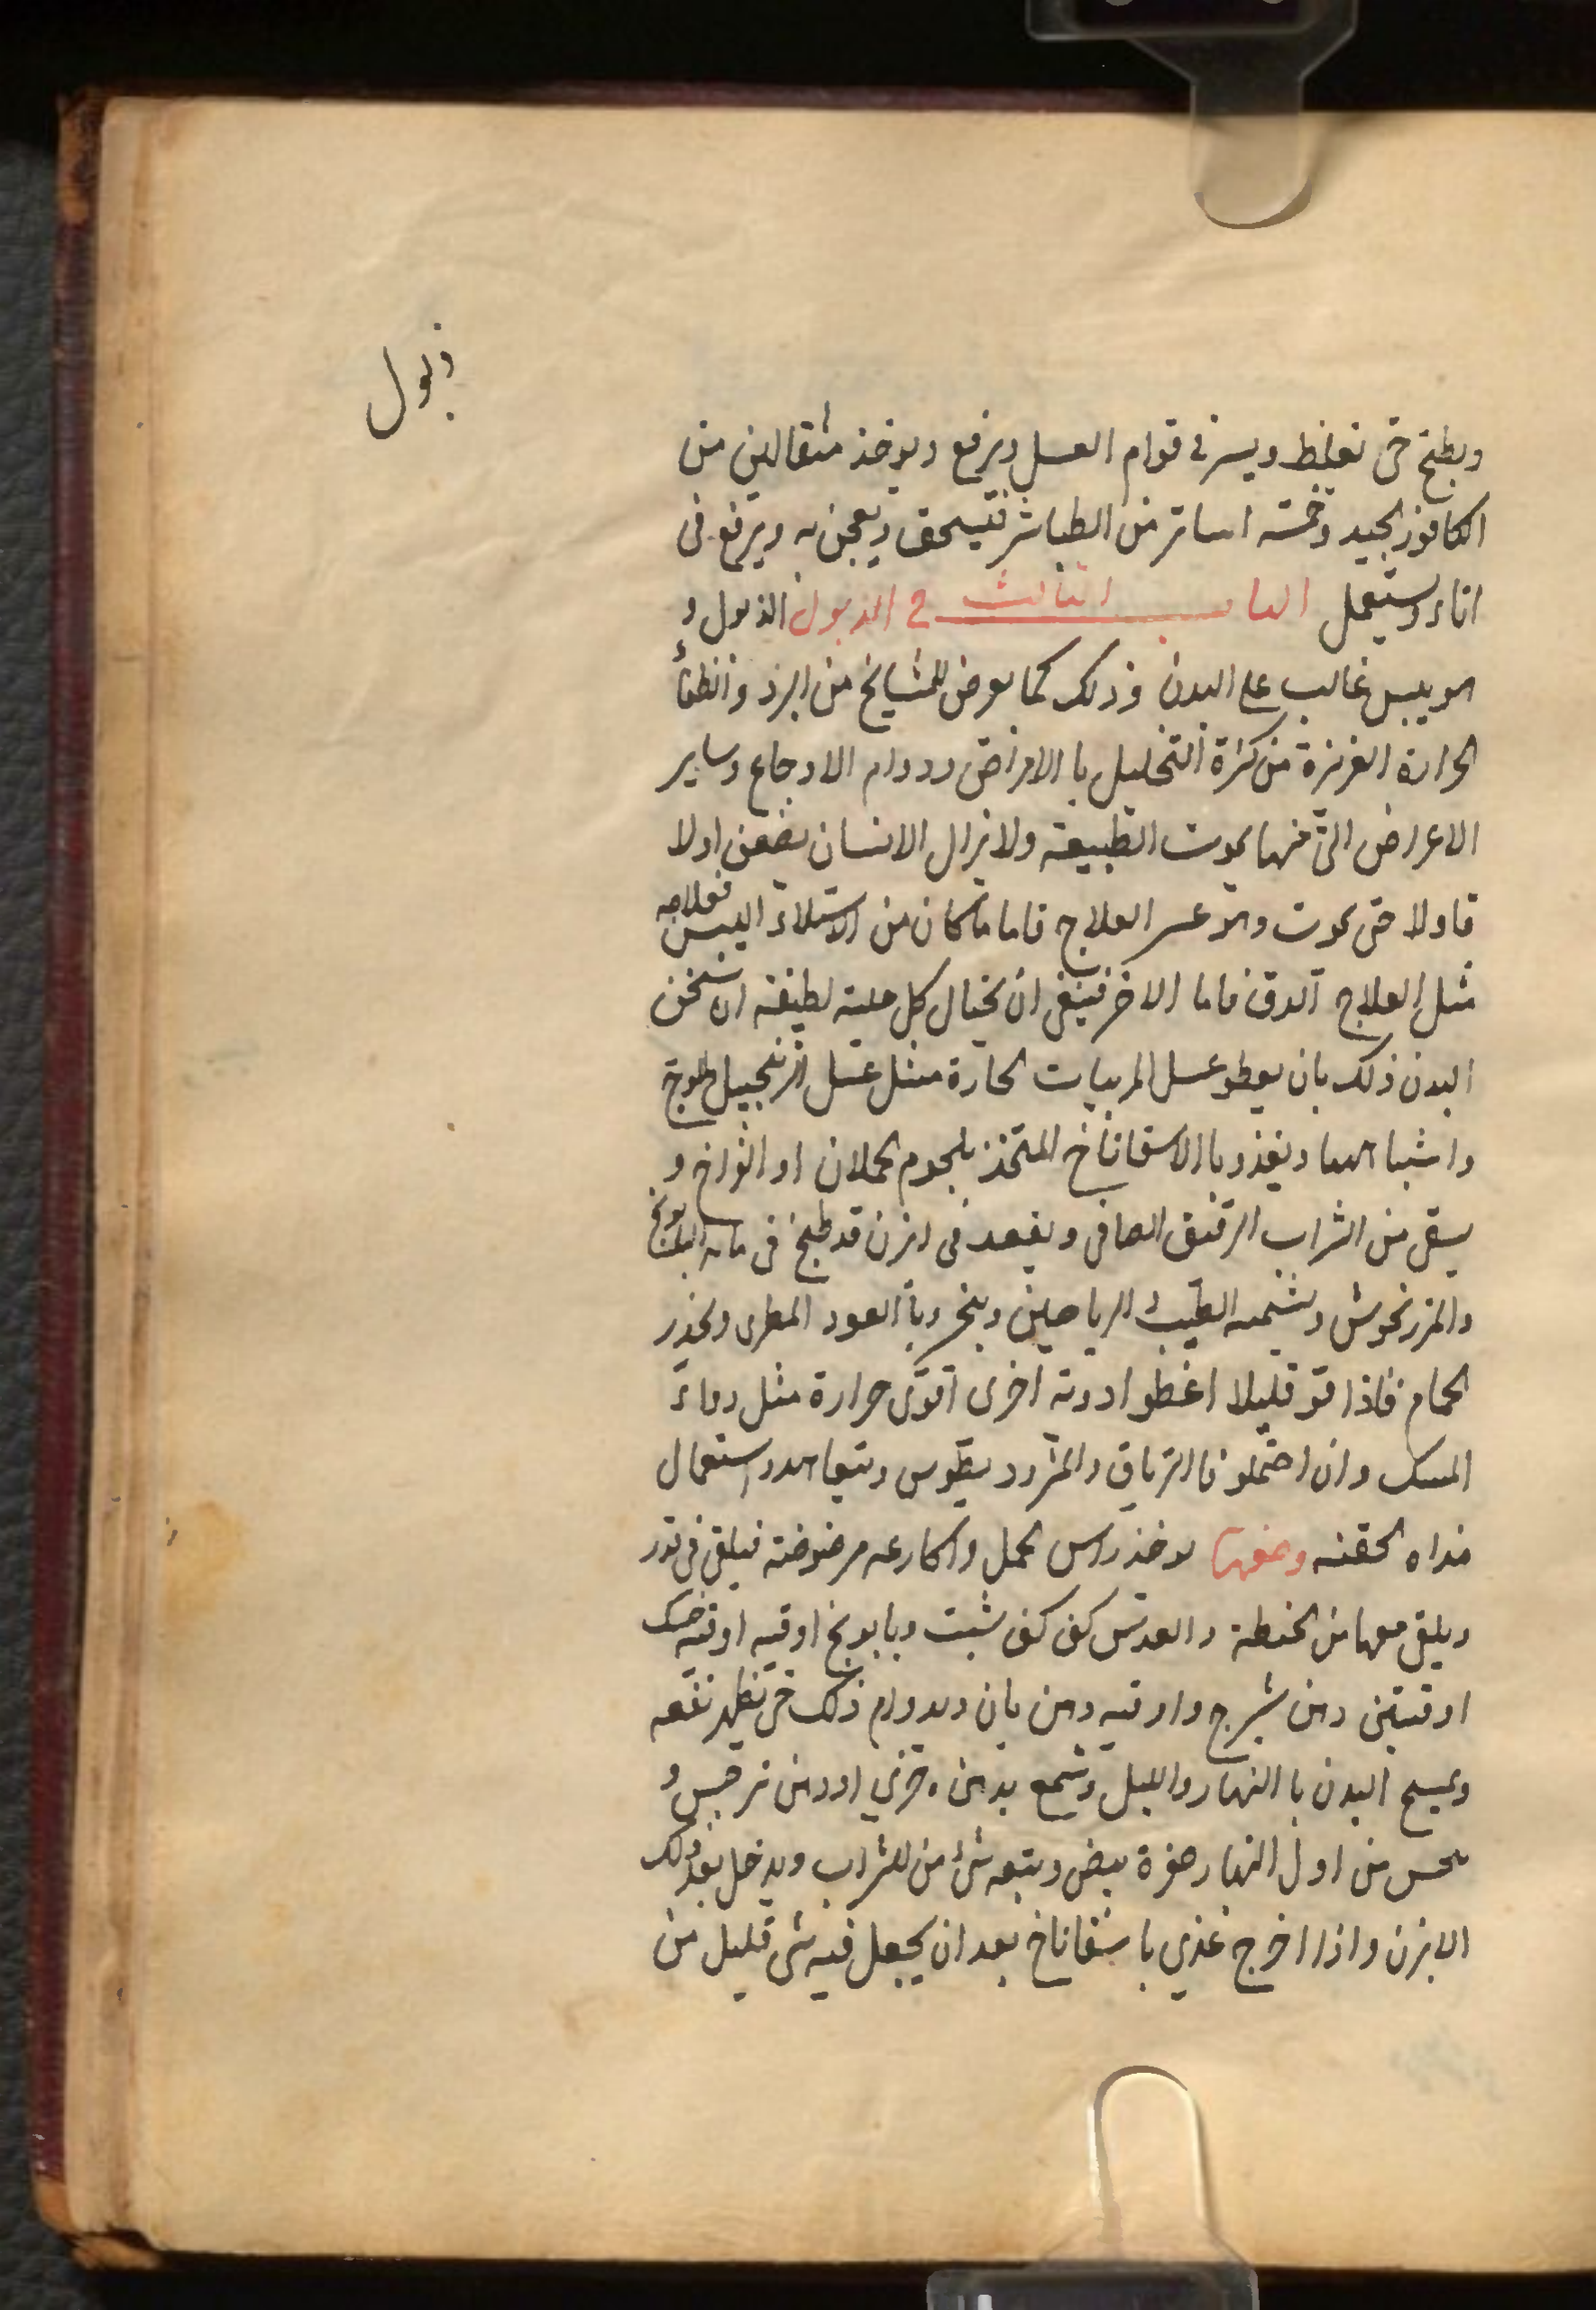 ذبول
ويطبخ حتى تغلظ ويسر فى قوام العسل ويرفع ويوخذ مثقالين من
الكافور الجيد وخمسة اساتر من الطباشر فتيسحق ويعجن به ويرفع فى
اناء ويستعمل الباب الثالث فى الذبول الذبول و
هو يبس غالب على البدن وذلك كما يعرض للمشايخ من البرد وانطفاء
الحرارة الغريزة من كثرة التحليل با الامراض ودوام الاوجاع وساير
الاعراض التى منها يموت الطبيعة ولا يزال الانسان يضعف اولا
فاولا حتى يموت وهو عسر العلاج فاما ما كان من الاستيلاء اليبس فعلاجه
مثل العلاج الدق فاما الاخر فينبغى ان يحتال كل حيلة لطيفة ان تسخن
البدن ذلك بان يعطو عسل المربيات الحارة مثل عسل الزنجبيل والوج
واشباهها ويغذو با الاسفاناخ المتخذ بلحوم الحملان او الفراخ و
يسقى من الشراب الرقيق الصافى ويقعد فى ابزن قد طبخ فى مائه البابونج
والمرزنجوش ويشمه الطيب والرياحين ويبخر وبا العود المطرى ويحذر
الحمام فاذا قو قليلا اعطو ادوية اخرى اقوى حرارة مثل دواء
المسك وان احتملو فا الترياق والمثروديطوس ويتعاهدو استعمال
هذاه الحقنه وصفها يوخذ راس الحمل واكارعه مرضوضة فيلقى فى قدر
ويلقى معها من الحنطة والعدس كف كف شبت وبابونج اوقيه اوقيه حسك
اوقيتين دهن شيرج واوقيه دهن بان ويدوام ذلك حتى يظهر نفعه
ويمسح البدن با النهار والليل وشمع بدهن خيرى او دهن نرجس و
يحس من اول النهار صفرة بيض ويتبعه شئ من الشراب ويدخل بعد ذلك
الابزن واذا اخرج غذي با سفاناخ بعد ان يجعل فيه شى قليل من